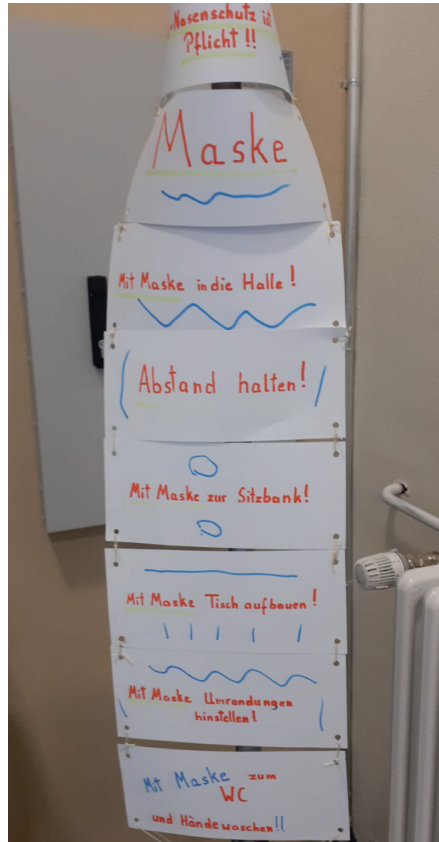 -Nasenschutz ist
Pflicht!!
Maske
Mit Maske in die Halle!
Abstand halten!
Mit Maske zur Sitzbank!
Mit Maske Tisch aufbauen!
Mit Maske Umrandungen
hinstellen!
Mit Maske zum
WC
und Händewaschen!!